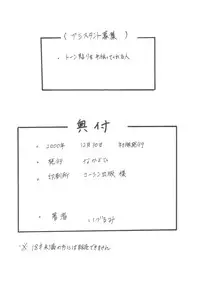 ( アシスタント募集 )
・トーン貼りを手伝ってくれる人
奥付
・2000年 12月30日 初版発行
・発行
・印刷所 コーシン出版 様
・著者
・※ 18才未満の方には販売できません